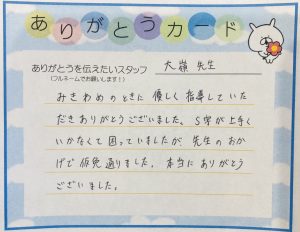 ありがとうカード
ありがとうを伝えたいスタッフ
(フルネームでお願いします!)
大嶺 先生
みきわめのときに 優しく 指導していた
だきありがとうございました。S字が上手く
いかなくて困っていましたが、先生のおか
げで仮免通りました。本当にありがとう
ございました。